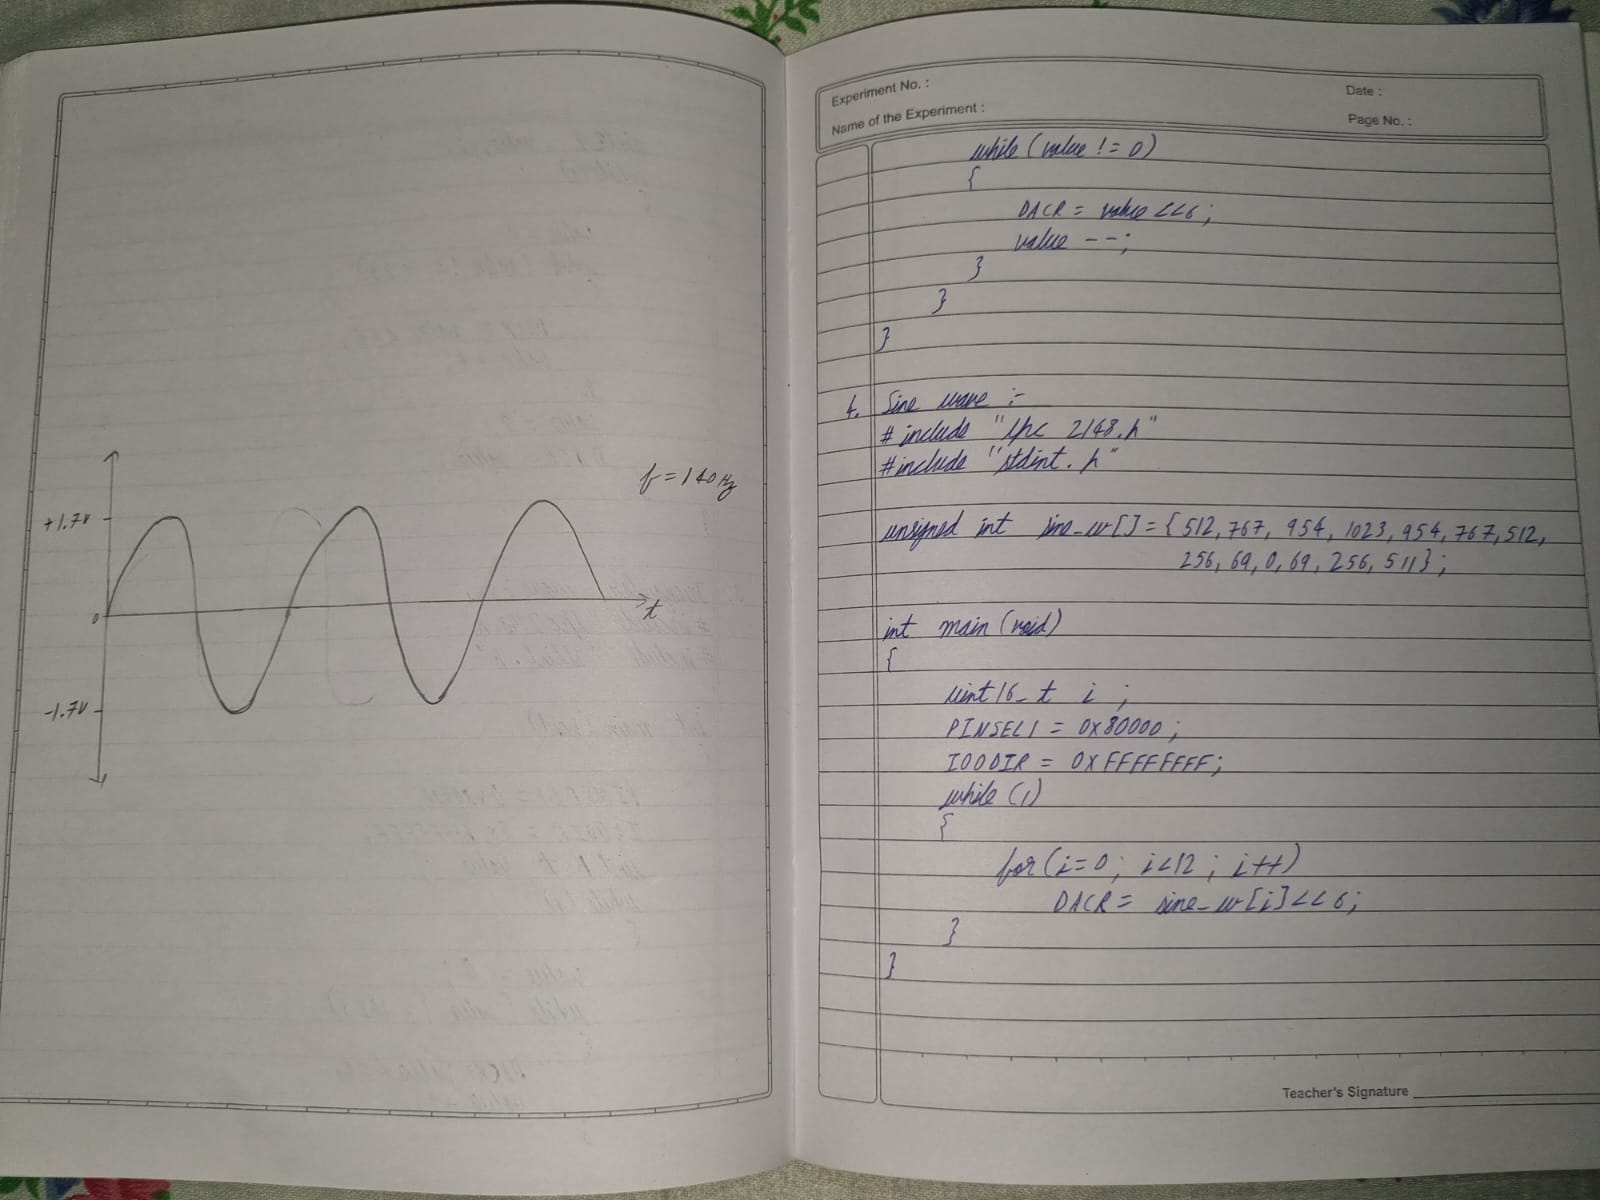 +1.7V
0
-1.7V
f = 140Hz
t
Experiment No. :
Date :
Name of the Experiment :
Page No. :
while (value != 0)
{
DACR = value <<6;
value --;
}
}
}
4. Sine wave :-
# include "lpc 2148.h"
#include "stdint.h"
unsigned int sine_w[] = {512, 767, 954, 1023, 954, 767, 512,
256, 69, 0, 69, 256, 511};
int main (void)
{
uint16_t i ;
PINSEL1 = 0x80000;
IO0DIR = 0xFFFFFFFF;
while (1)
{
for (i=0; i<12; i++)
DACR = sine_w[i]<<6;
}
}
Teacher's Signature